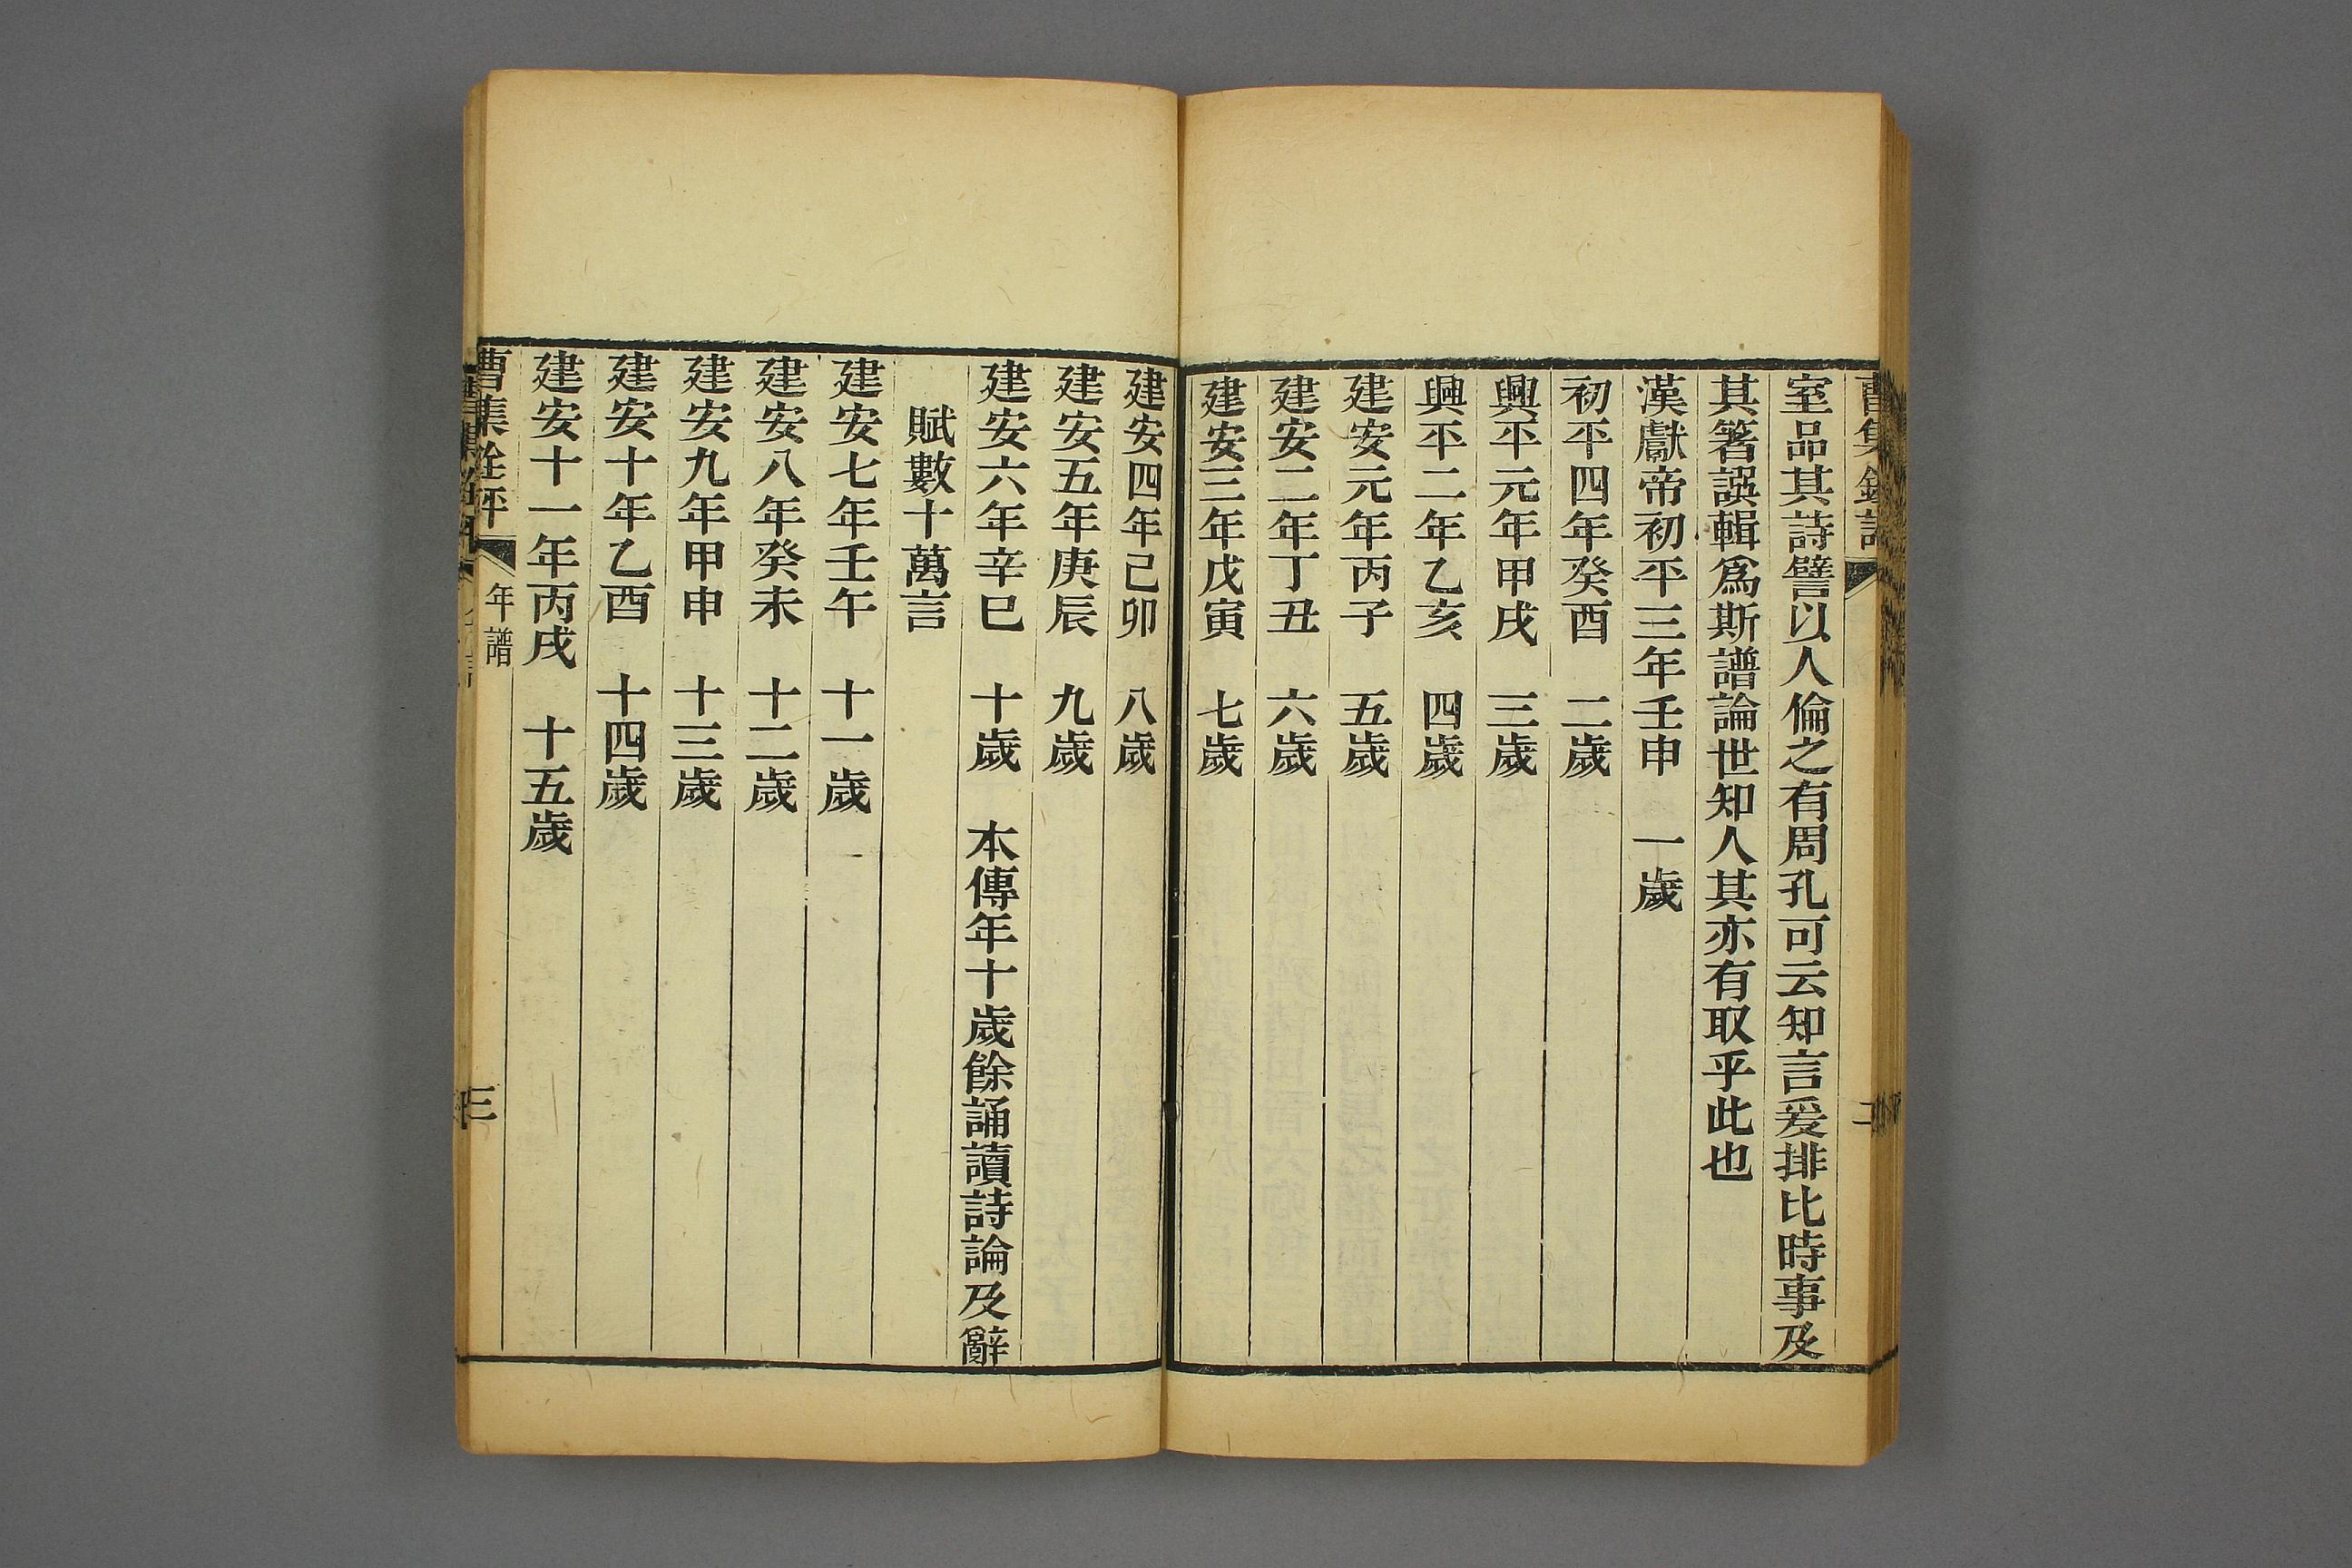 室品其詩譬以人倫之有周孔可云知言爰排比時事及
其箸譔輯爲斯譜論世知人其亦有取乎此也
漢獻帝初平三年壬申 一歲
初平四年癸酉 二歲
興平元年甲戌 三歲
興平二年乙亥 四歲
建安元年丙子 五歲
建安二年丁丑 六歲
建安三年戊寅 七歲
建安四年己卯 八歲
建安五年庚辰 九歲
建安六年辛巳 十歲 本傳年十歲餘誦讀詩論及辭
賦數十萬言
建安七年壬午 十一歲
建安八年癸未 十二歲
建安九年甲申 十三歲
建安十年乙酉 十四歲
建安十一年丙戌 十五歲
曹集銓評 年譜 三